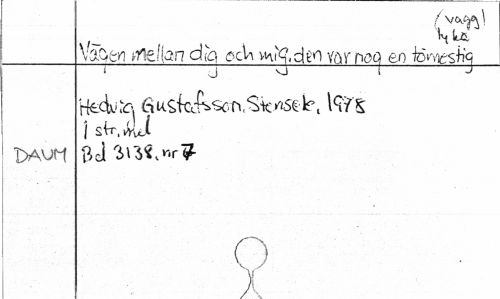 (vagg)
lyka
Vägen mellan dig och mig, den var nog en törnestig
Hedvig Gustafsson, Stensele, 1978
1 str, mel
DAUM Bd 3138, nr 7